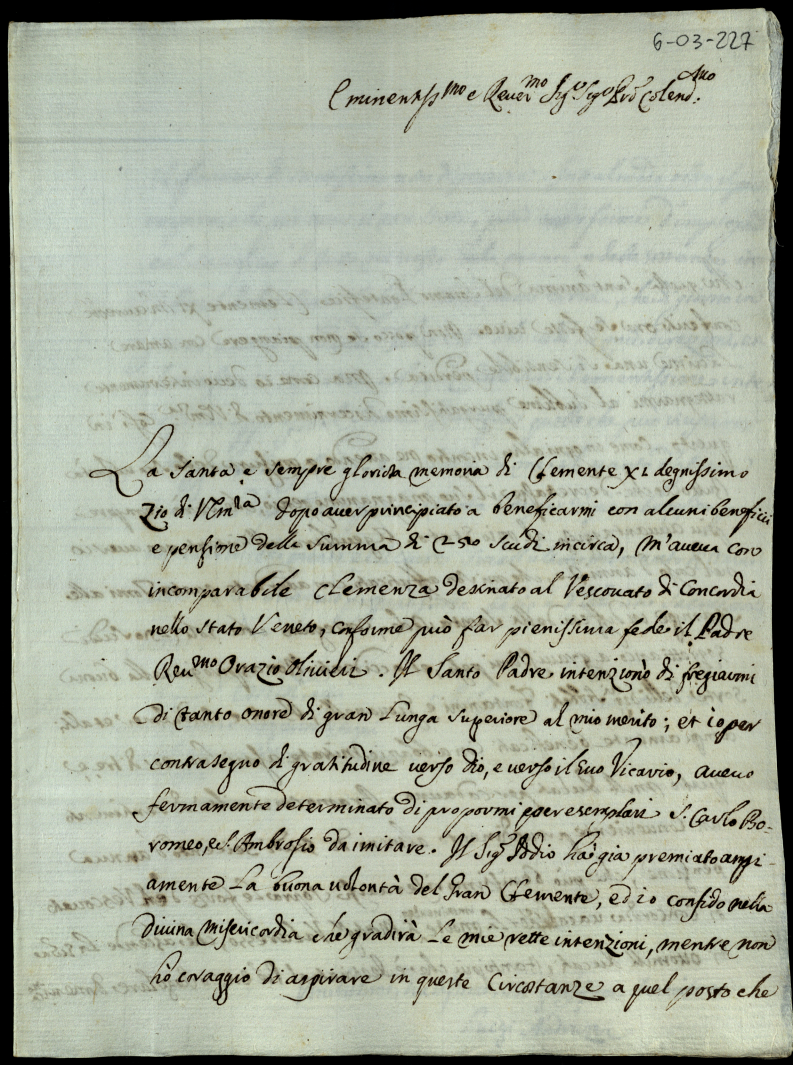 6-03-227
Eminentiss.mo e Rever.mo Sig.e Sig.e Prô Colend.mo
La Santa e sempre gloriosa memoria di Clemente XI degnissimo
Zio di V. Em.za dopo aver principiato a beneficarmi con alcuni beneficii
e pensione della summa di 250 scudi incirca, m'aveva con
incomparabile Clemenza destinato al Vescovato di Concordia
nello Stato Veneto, conforme può far pienissima fede il Padre
Reu.mo Orazio Olivieri. Il Santo Padre intenzionò di fregiarmi
di tanto onore di gran lunga superiore al mio merito; et io per
contrasegno di gratitudine verso Dio, e verso il suo Vicario, avevo
fermamente determinato di propormi per esemplari S. Carlo Bo-
romeo, e S. Ambrosio da imitare. Il Sig.e Iddio ha già premiato ampi-
amente la buona volontà del Gran Clemente, ed io confido nella
Divina Misericordia che gradirà le mie rette intenzioni, mentre non
hò coraggio di aspirare in queste Circostanze a quel posto che